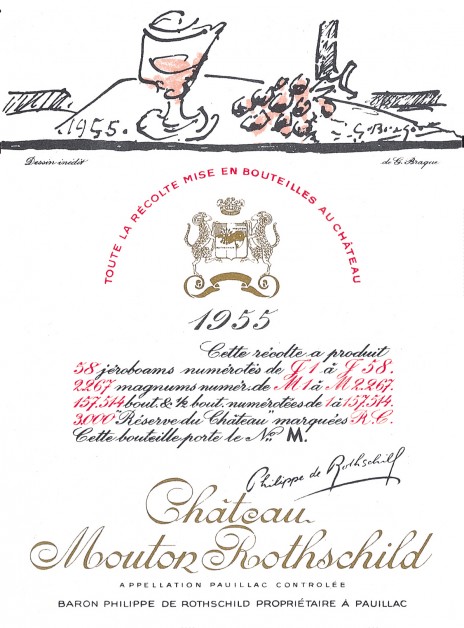 1955.
G. Braque
Dessin inédit
de G. Braque
TOUTE LA RÉCOLTE MISE EN BOUTEILLES AU CHÂTEAU
1955
Cette récolte a produit
58 jéroboams numérotés de J1 à J 58.
2.267 magnums numér. de M1 à M 2.267.
157.514 bout. & ½ bout. numérotées de 1 à 157.514.
3.000 "Réserve du Château" marquées R.C.
Cette bouteille porte le No M.
Philippe de Rothschild
Château
Mouton Rothschild
APPELLATION PAUILLAC CONTROLÉE
BARON PHILIPPE DE ROTHSCHILD PROPRIÉTAIRE A PAUILLAC